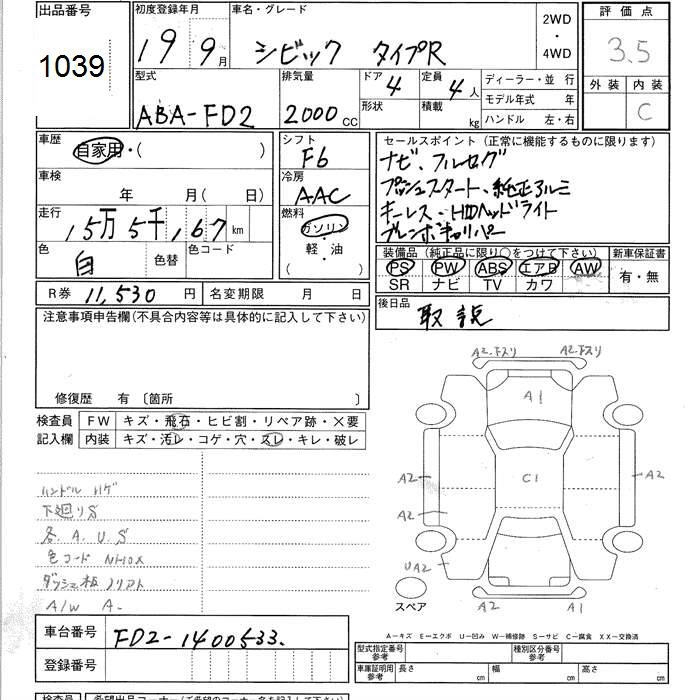 出品番号 初度登録年月 車名・グレード 2WD・4WD 評価点
1039 19 9月 シビック タイプR 3.5
型式 排気量 ドア 4 定員 4人 ディーラー・並行 外装 内装
ABA-FD2 2000cc 形状 積載 kg モデル年式 年 C
ハンドル 左・右
車歴 自家用・( ) シフト F6 セールスポイント(正常に機能するものに限ります)
ナビ、フルセグ
車検 年 月( 日) 冷房 AAC プッシュスタート、純正アルミ
キーレス、HIDヘッドライト
走行 15万5千,167km 燃料 ガソリン・軽・油 ( ) ブレンボキャリパー
色 白 色替 色コード 装備品(純正品に限り○をつけて下さい) 新車保証書
PS PW ABS エアB AW 有・無
SR ナビ TV カワ
R券 11,530円 名変期限 月 日 後日品
取説
注意事項申告欄(不具合内容等は具体的に記入して下さい)
修復歴 有〔箇所 〕
検査員 FW キズ・飛石・ヒビ割・リペア跡・×要
記入欄 内装 キズ・汚レ・コゲ・穴・スレ・キレ・破レ
ハンドル ハゲ
下廻りS
各 A.U.S
色コード NH0X
A/W A-
A2.下スリ A2.下スリ
A1
C1
A2 A2
A2
UA2
A2 A1
スペア
A-キズ E-エクボ U-凹み W-補修跡 S-サビ C-腐食 XX-交換済
車台番号 FD2-1400533.
登録番号
型式指定番号 参考 種別区分番号 参考
車庫証明用 参考 長さ cm 幅 cm 高さ cm
検査員 希望出品コーナー(ご希望のコーナー名を記入して下さい)